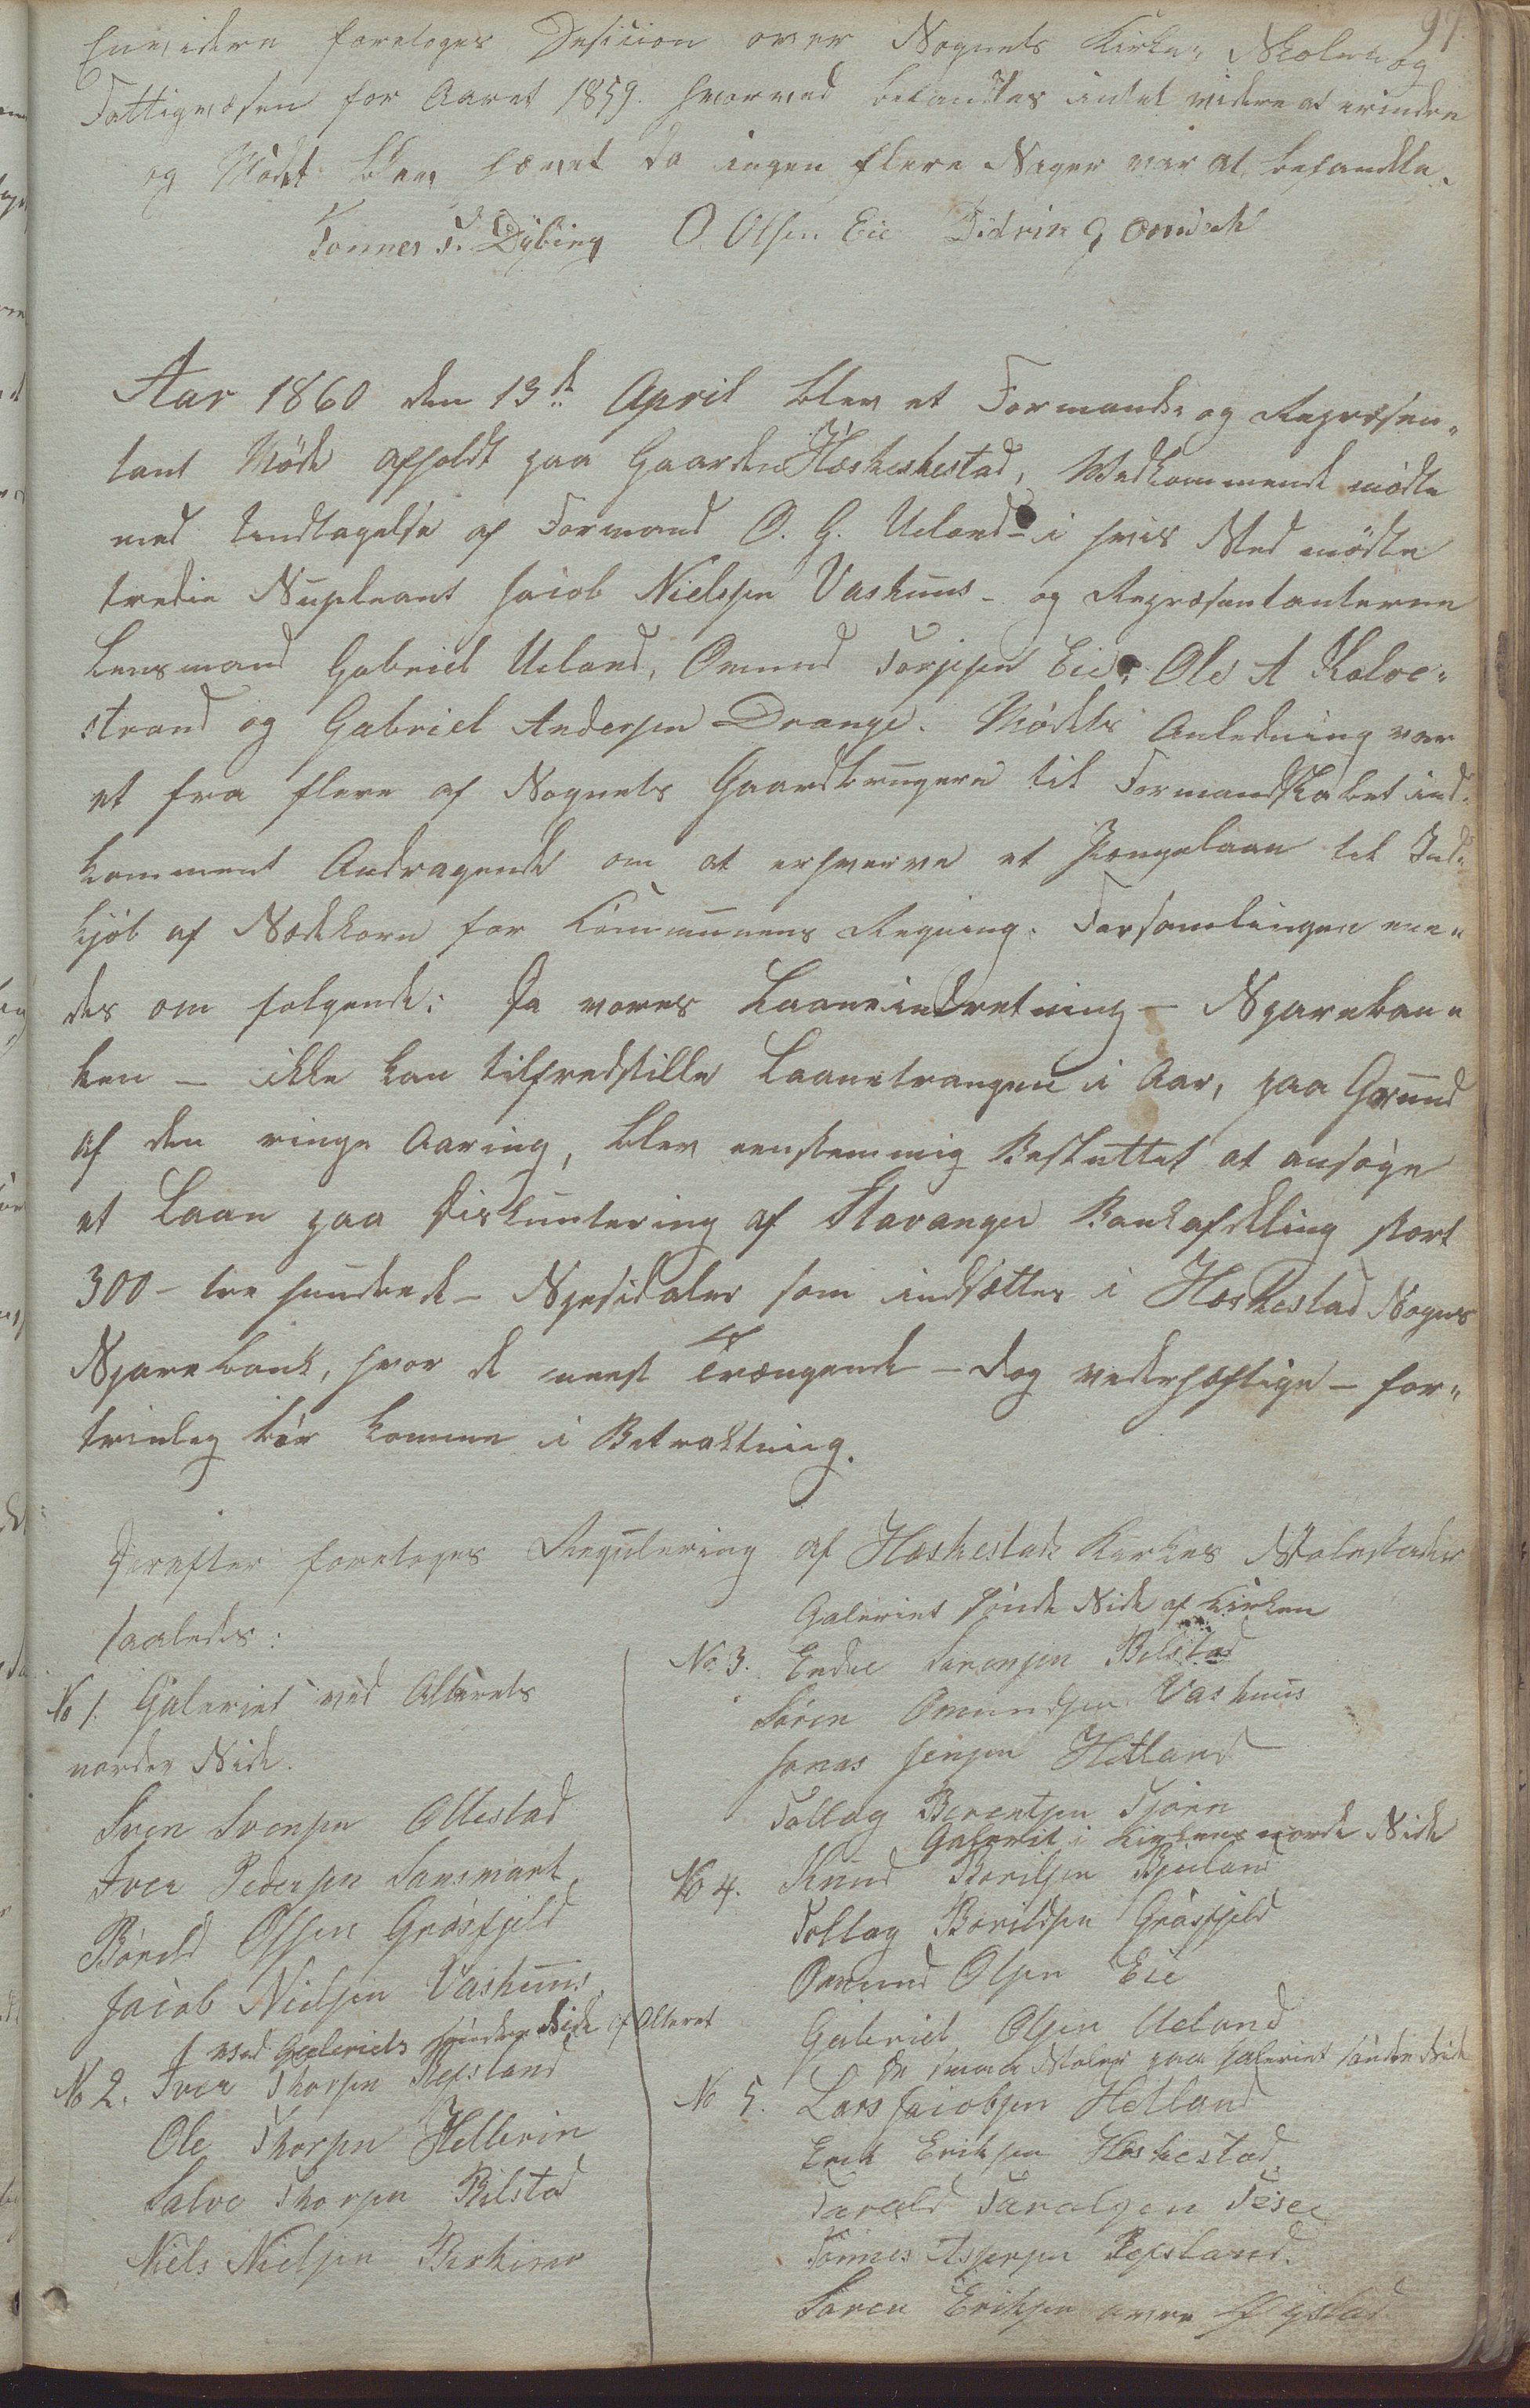 97.
Envidere foretoges Desicion over Sognets Kirke, Skole og
Fattigvæsen for Aaret 1859. hvorved befandtes intet videre at erindre
og Mødet blev hævet da ingen flere Sager var at behandle.
Tonnes T. Dybing O Olsen Eie Didrik
Aar 1860 den 13de April blev et Formands og Repræsen„
tant Møde afholdt paa Gaarden Hæskestad, Vedkommende mødte
med Undtagelse af Formand O. G. Ueland – i hvis Sted mødte
tredie Supleant Jacob Nielsen Vashuus – og Repræsentanterne
Lensmand Gabriel Ueland, Omund Torjesen Eie, Ole A Kalve„
strand og Gabriel Andersen Drange. Mødets Anledning var
et fra flere af Sognets Gaardbrugere til Formandskabet ind„
komment Andragende om at erhverve et Pengelaan til Ind„
kjøb af Sædekorn for Communens Regning. Forsamlingen ene„
des om følgende: Da vores Laaneindretning – Spareban„
ken – ikke kan tilfredstille Laanetrangen i Aar, paa Grund
af den ringe Aaring, blev eenstemmig Besluttet at ansøge
et Laan paa Diskuntering af Stavanger Bankafdeling stort
300 – tre hundrede – Spesidaler som indsættes i Hæskestad Sogns
Sparebank, hvor de meest Trængende – dog vederhæftige – for„
trinlig bør komme i Betraktning.
Derefter foretoges Regulering af Hæskestads Kirkes Stolestader
saaledes:
No 1. Galeriet ved Alterets
norder Side.
Sven Svensen Ollestad
Iver Pedersen Lansmark
Børild Olsen Grøsfjeld
Jacob Nielsen Vashuus
ved Galeriets sønder Side af Alteret
No 2. Iver Thorsen Refsland
Ole Thorsen Helleren
Salve Thorsen Bilstad
Niels Nielsen
Galeriet sønder Side af Kirken
No 3. Endre Sørensen Bilstad
Søren Omundsen Vashuus
Jonas Jensen Hetland
Tollag Berentsen Tjørn
Galeriet i Kirkens norde Side
No 4. Knud Børilsen Bjuland
Tollag Børildsen Grøsfjeld
Omund Olsen Eie
Gabriel Olsen Ueland
De smaa Stoler paa Galeriet sønder Side
No 5. Lars Jacobsen Hetland
Erik Eriksen Hæskestad
Tarald Taralsen
Tønnes Refsland.
Søren Eriksen øvre